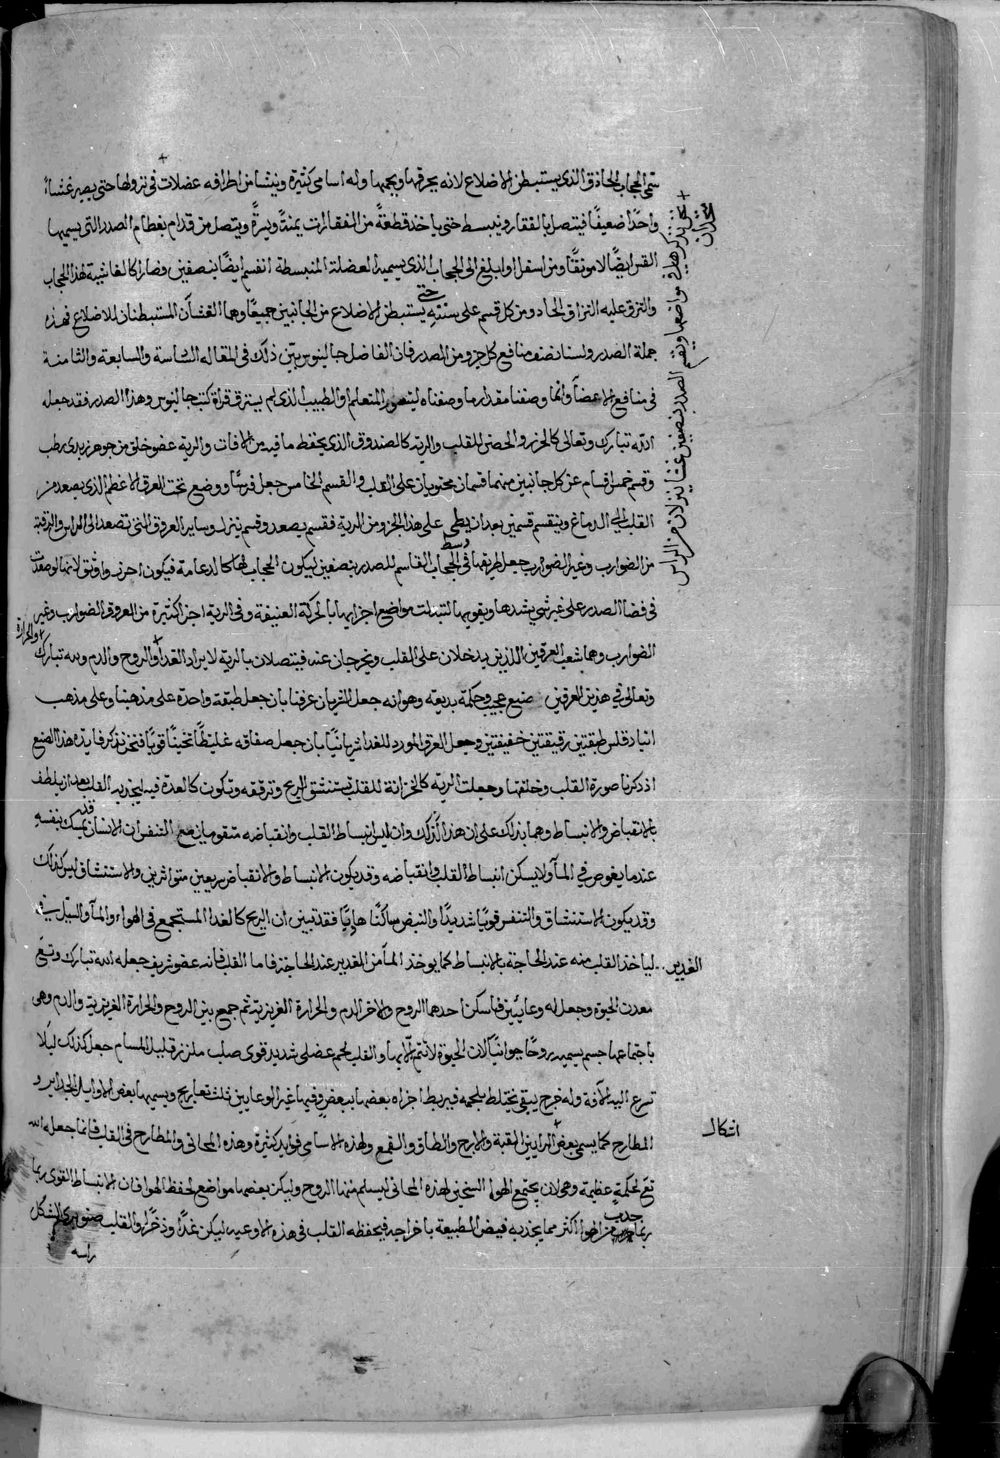 سمى الحجاب الحاذق الذى يستبطن الاضلاع لانه يحرقها ويحميها وله اسامى كثيرة وينشا من اطرافه عضلات فى نزولها حتى يصير غشاء
واحدًا ضعيفًا فيتصل بالفقار وينبسط حتى ياخذ قطعةً من الفقارات يمنةً ويسرةً ويتصل من قدام بعظام الصدر التى يسميها
القس ايضًا لا موثقًا ومن اسفل اوا بلغ الى الحجاب الذى يسميه العضلة المنبسطة انقسم ايضًا بنصفين وصارا كالغاشية لهذا الحجاب
والتزق عليه التزاق الحاد ومن كل قسم على سنته حتى يستبطن الاضلاع من الجانبين جميعًا وهما الغشآن المستبطنان للاضلاع فهذه
جملة الصدر ولسنا نصف منافع كل جزو من الصدر فان الفاضل جالينوس بيّن ذلك فى المقاله السادسة والسابعة والثامنة
فى منافع الاعضآ وانما وصفنا مقدار ما وصفناه ليتصور المتعلم او الطبيب الذى لم يسترق قراة كتب جالينوس وهذا الصدر فقد جعله
الله تبارك وتعالى كالحرز والحصن للقلب والرية كالصندوق الذى يحفظ ما فيه من الافات والرية عضو خلق من جوهر زبدى رطب
وقسم خمس اقسام عن كل جانبين منهما قسمان محتويان على القلب والقسم الخامس جعل فرشًا ووضع تحت العرق الاعظم الذى يصعد من
القلب الى الدماغ وينقسم قسمين بعد ان يطى على هذا الجزو من الرية فقسم يصعد وقسم ينزل وساير العروق التى تصعد الى الراس والرقبة
من الضوارب وغير الضوارب جعل طريقها فى وسط الحجاب القاسم للصدر بنصفين ليكون الحجاب لها كالدعامة فيكون احرز واوثق لانها لو صعدت
فى فضا الصدر على غير شى يشدها ويقويها لتبدلت مواضع اجزايها بالحركة العنيفة وفى الرية اجزا كثيرة من العروق الضوارب وغير
الضوارب وهما شعب العرقين اللذين يدخلان على القلب ويخرجان عنه فيتصلان بالرية لايراد الغدا والروح والدم والحرارة ولله تبارك
وتعالى فى هذين العرقين صنيع عجيب وحكمة بديعة وهو انه جعل الشريان عرقا بان جعل طبقة واحدة على مذهبنا وعلى مذهب
انبادقلس طبقتين رقيقتين خفيفتين وجعل العرق المورد للغدا شريانيًا بان جعل صفاقه غليظًا ثخينًا قويًا فنحن نذكر فايدة هذا الصنع
اذ ذكرنا صورة القلب وخلقتها وجعلت الرية كالخزانة للقلب تستنشق الريح وترققه وتكون كالعدة فيه ليجذبه القلب بعد ان يلطف
بالانقباض والانبساط وهما بذلك على ان هذا كذلك وان ليس انبساط القلب وانقباضه متقومان مع التنفس ان الانسان قد يمسك نفسه
عند ما يغوص فى المآ ولا يسكن انبساط القلب وانقباضه وقد يكون الانبساط والانقباض سريعين متواثرين والاستنشاق ليس كذلك
وقد يكون الاستنشاق والتنفس قويًا شديدًا والنبض ساكنًا هاديًا فقد تبين ان الريح كالغدا المستجمع فى الهواء والمآ والسيل فى
الغدير .. لياخذ القلب منه عند الحاجة بالانبساط كما يوخذ المآ من الغدير عند الحاجة فاما القلب فانه عضو شريف جعله الله تبارك وتع
معدن الحيوة وجعل له وعايين فاسكن احدهما الروح والاخر الدم والحرارة الغريزية ثم جمع بين الروح والحرارة الغريزية والدم وهى
باجتماعها جسم يسميه روحًا حيوانيًا لان الحيوة لا تتم الا بها والقلب لحم عضلى شديد قوى صلب ملزز قليل المسام جعل كذلك ليلا
تسرع اليه الآفة وله فرج ليفى يختلط بلحمه فيربط اجزاه بعضها ببعض وفيها غير الوعايين ثلث تعاريج ويسميها بعض الاوايل الحجابر و
المطارح كما يسمى بعض البرابيين القبة والازج والطاق والقمع ولهذه الاسامى فوايد كثيرة وهذه المحانى والمطارح فى القلب فانما جعله الله
تع لحكمةٍ عظيمة وهى لان يجتمع الهوا السخين لهذه المحانى ليسلم منها الروح وليكن بعضها مواضع لحفظ الهوا فان الانبساط القوى ربما
ربما جذب من الهوا اكثر مما يجذبه فيض الطبيعة باخراجه فيحفظه القلب فى هذه الاوعيه ليكن غدًا وذخرًا والقلب صنوبرى الشكل
راسه
نحن نذكرهما فى مواضعها ويقسم الصدر بنصفين غشا ينزلان من الراس
اشكال